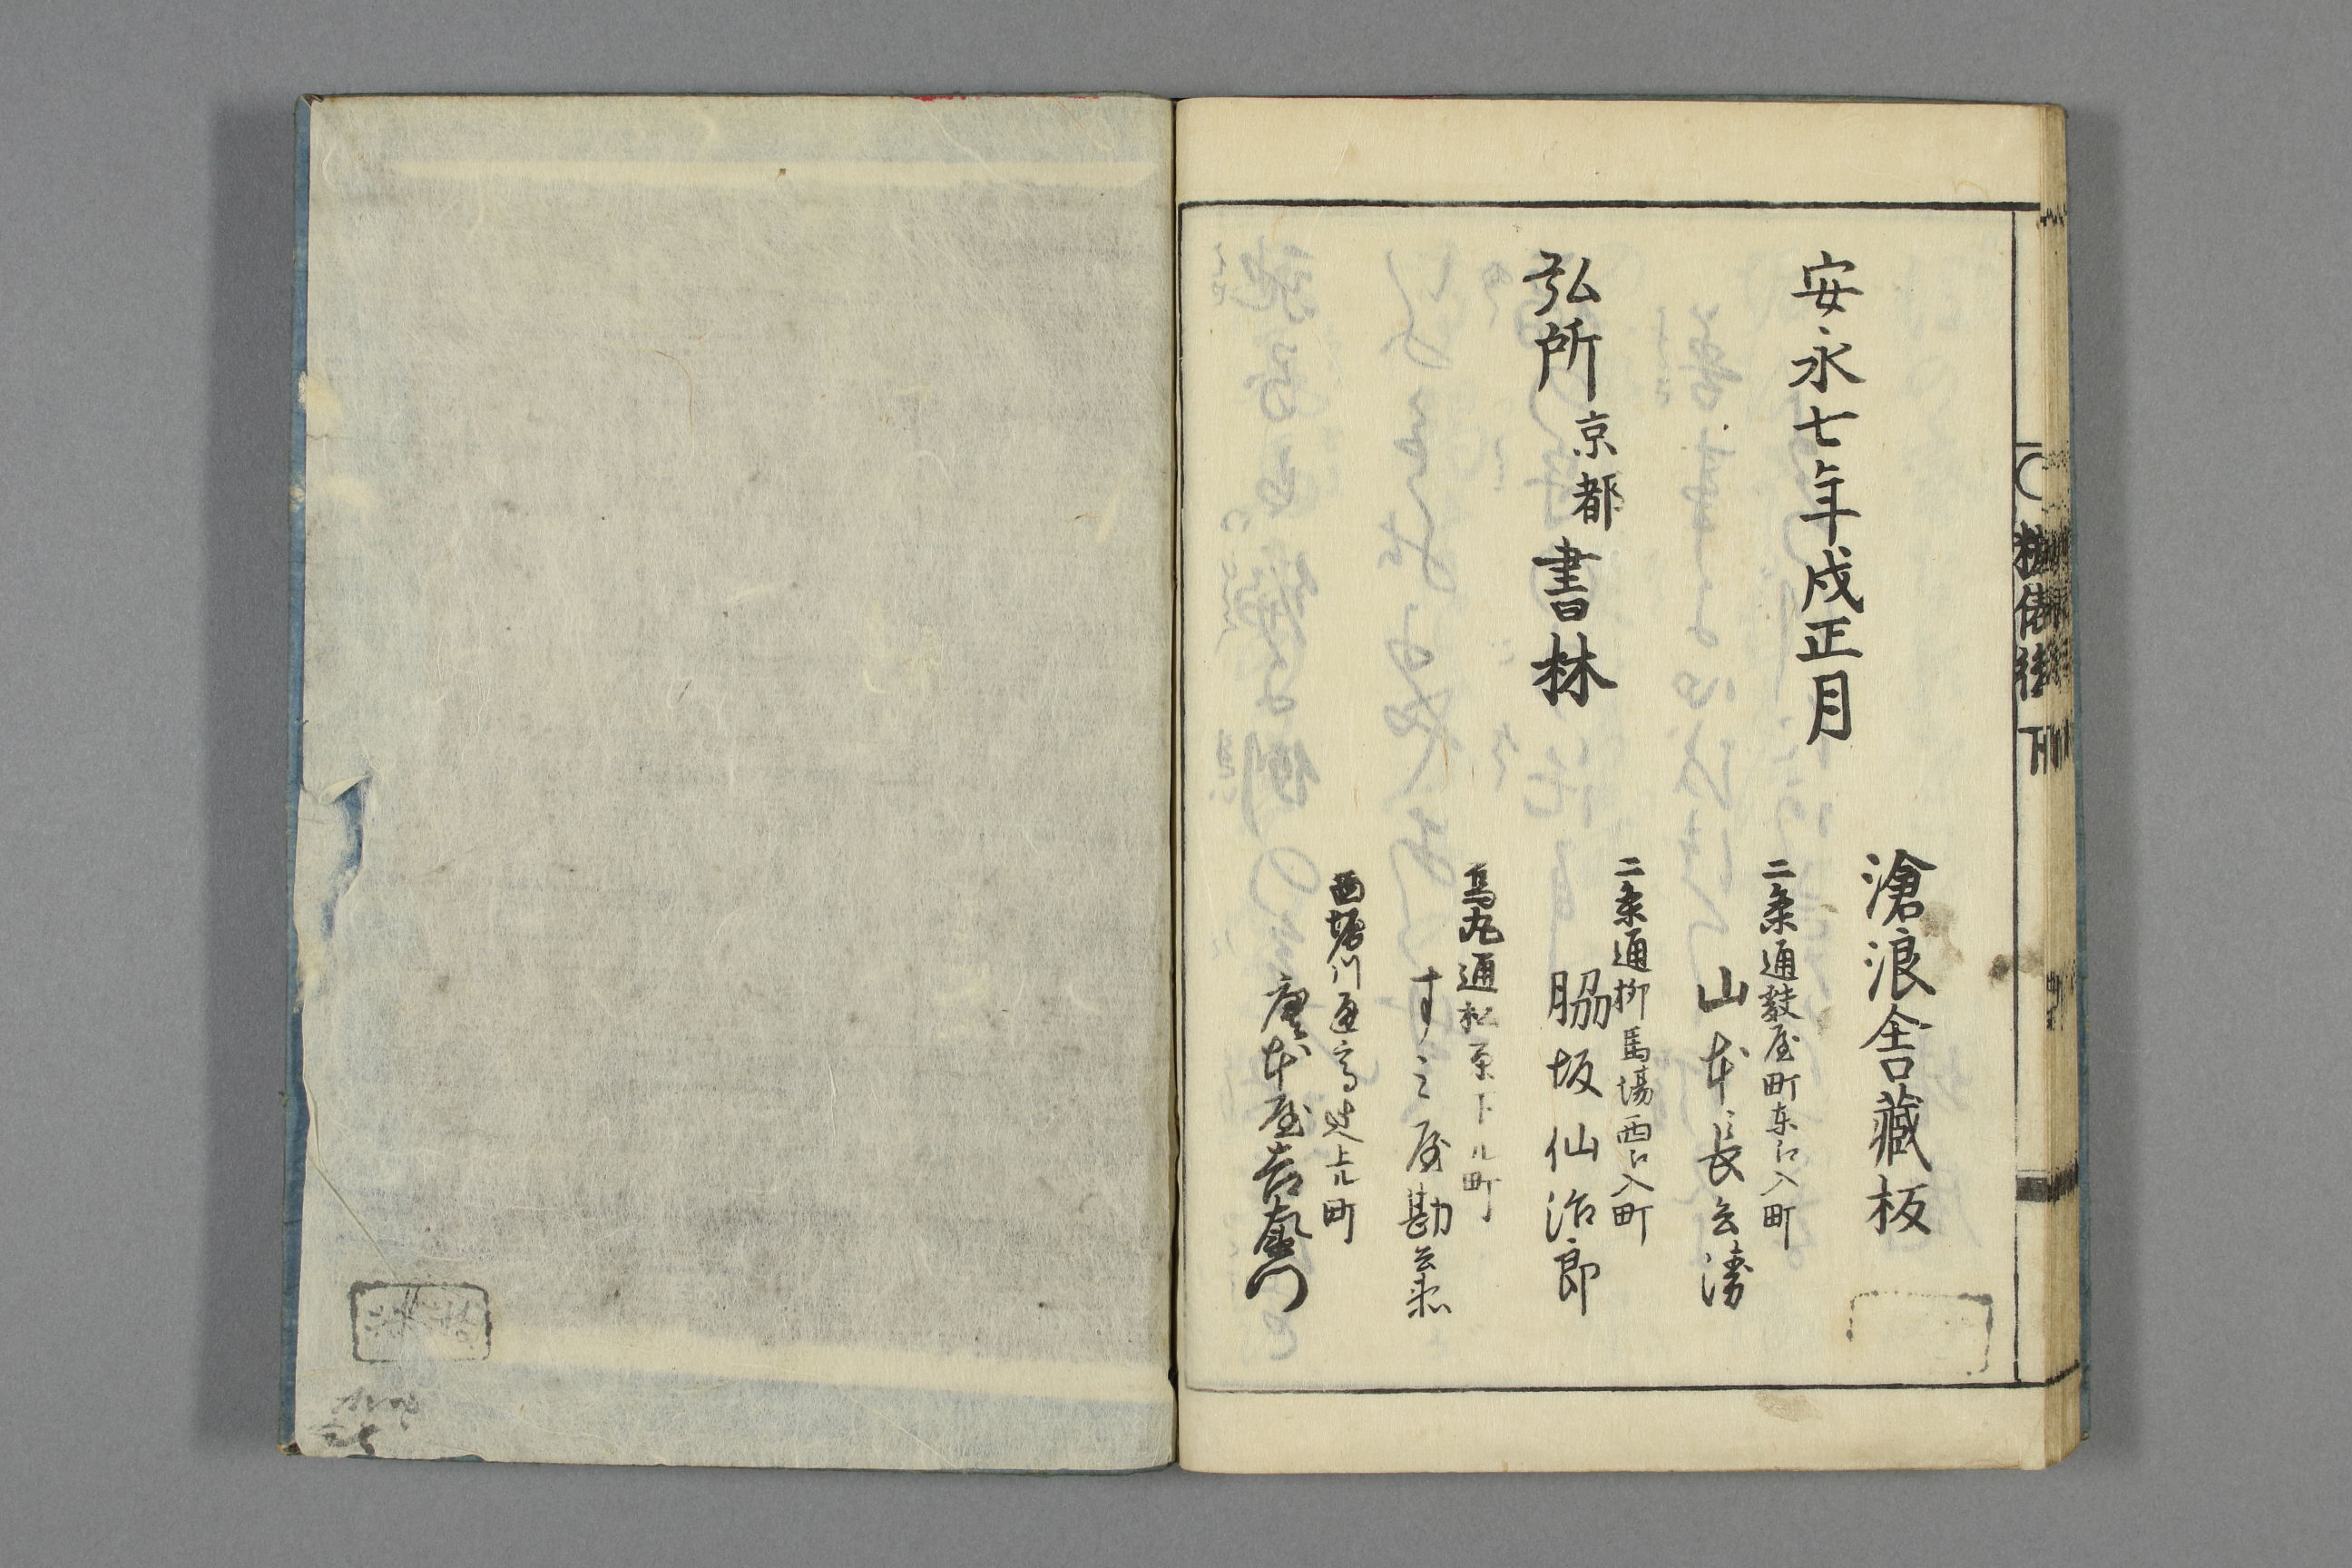 安永七年戌正月
滄浪舎藏板
弘所京都書林
二条通麩屋町东江入町
山本長兵衛
二条通柳馬場西江入町
脇坂仙治郎
烏丸通松原下ル町
すミ屋勘兵衛
西堀川通高辻上ル町
唐本屋吉左衛門
下